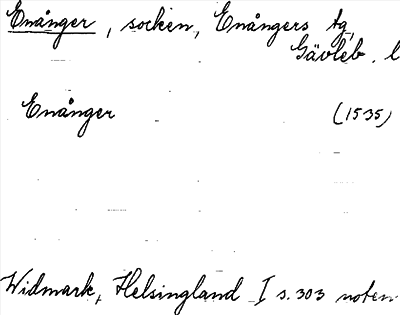 Enånger, socken, Enångers tg,
Gävleb. l
Enånger (1535)
Widmark, Helsingland I s. 303 noten